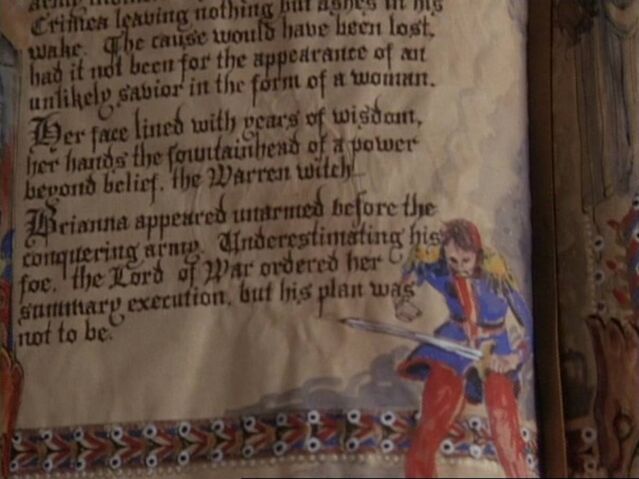 army
Crimea leaving nothing but ashes in his
wake. The cause would have been lost,
had it not been for the appearance of an
unlikely savior in the form of a woman.
Her face lined with years of wisdom,
her hands the fountainhead of a power
beyond belief, the Warren witch
Brianna appeared unarmed before the
conquering army. Underestimating his
foe, the Lord of War ordered her
summary execution, but his plan was
not to be.